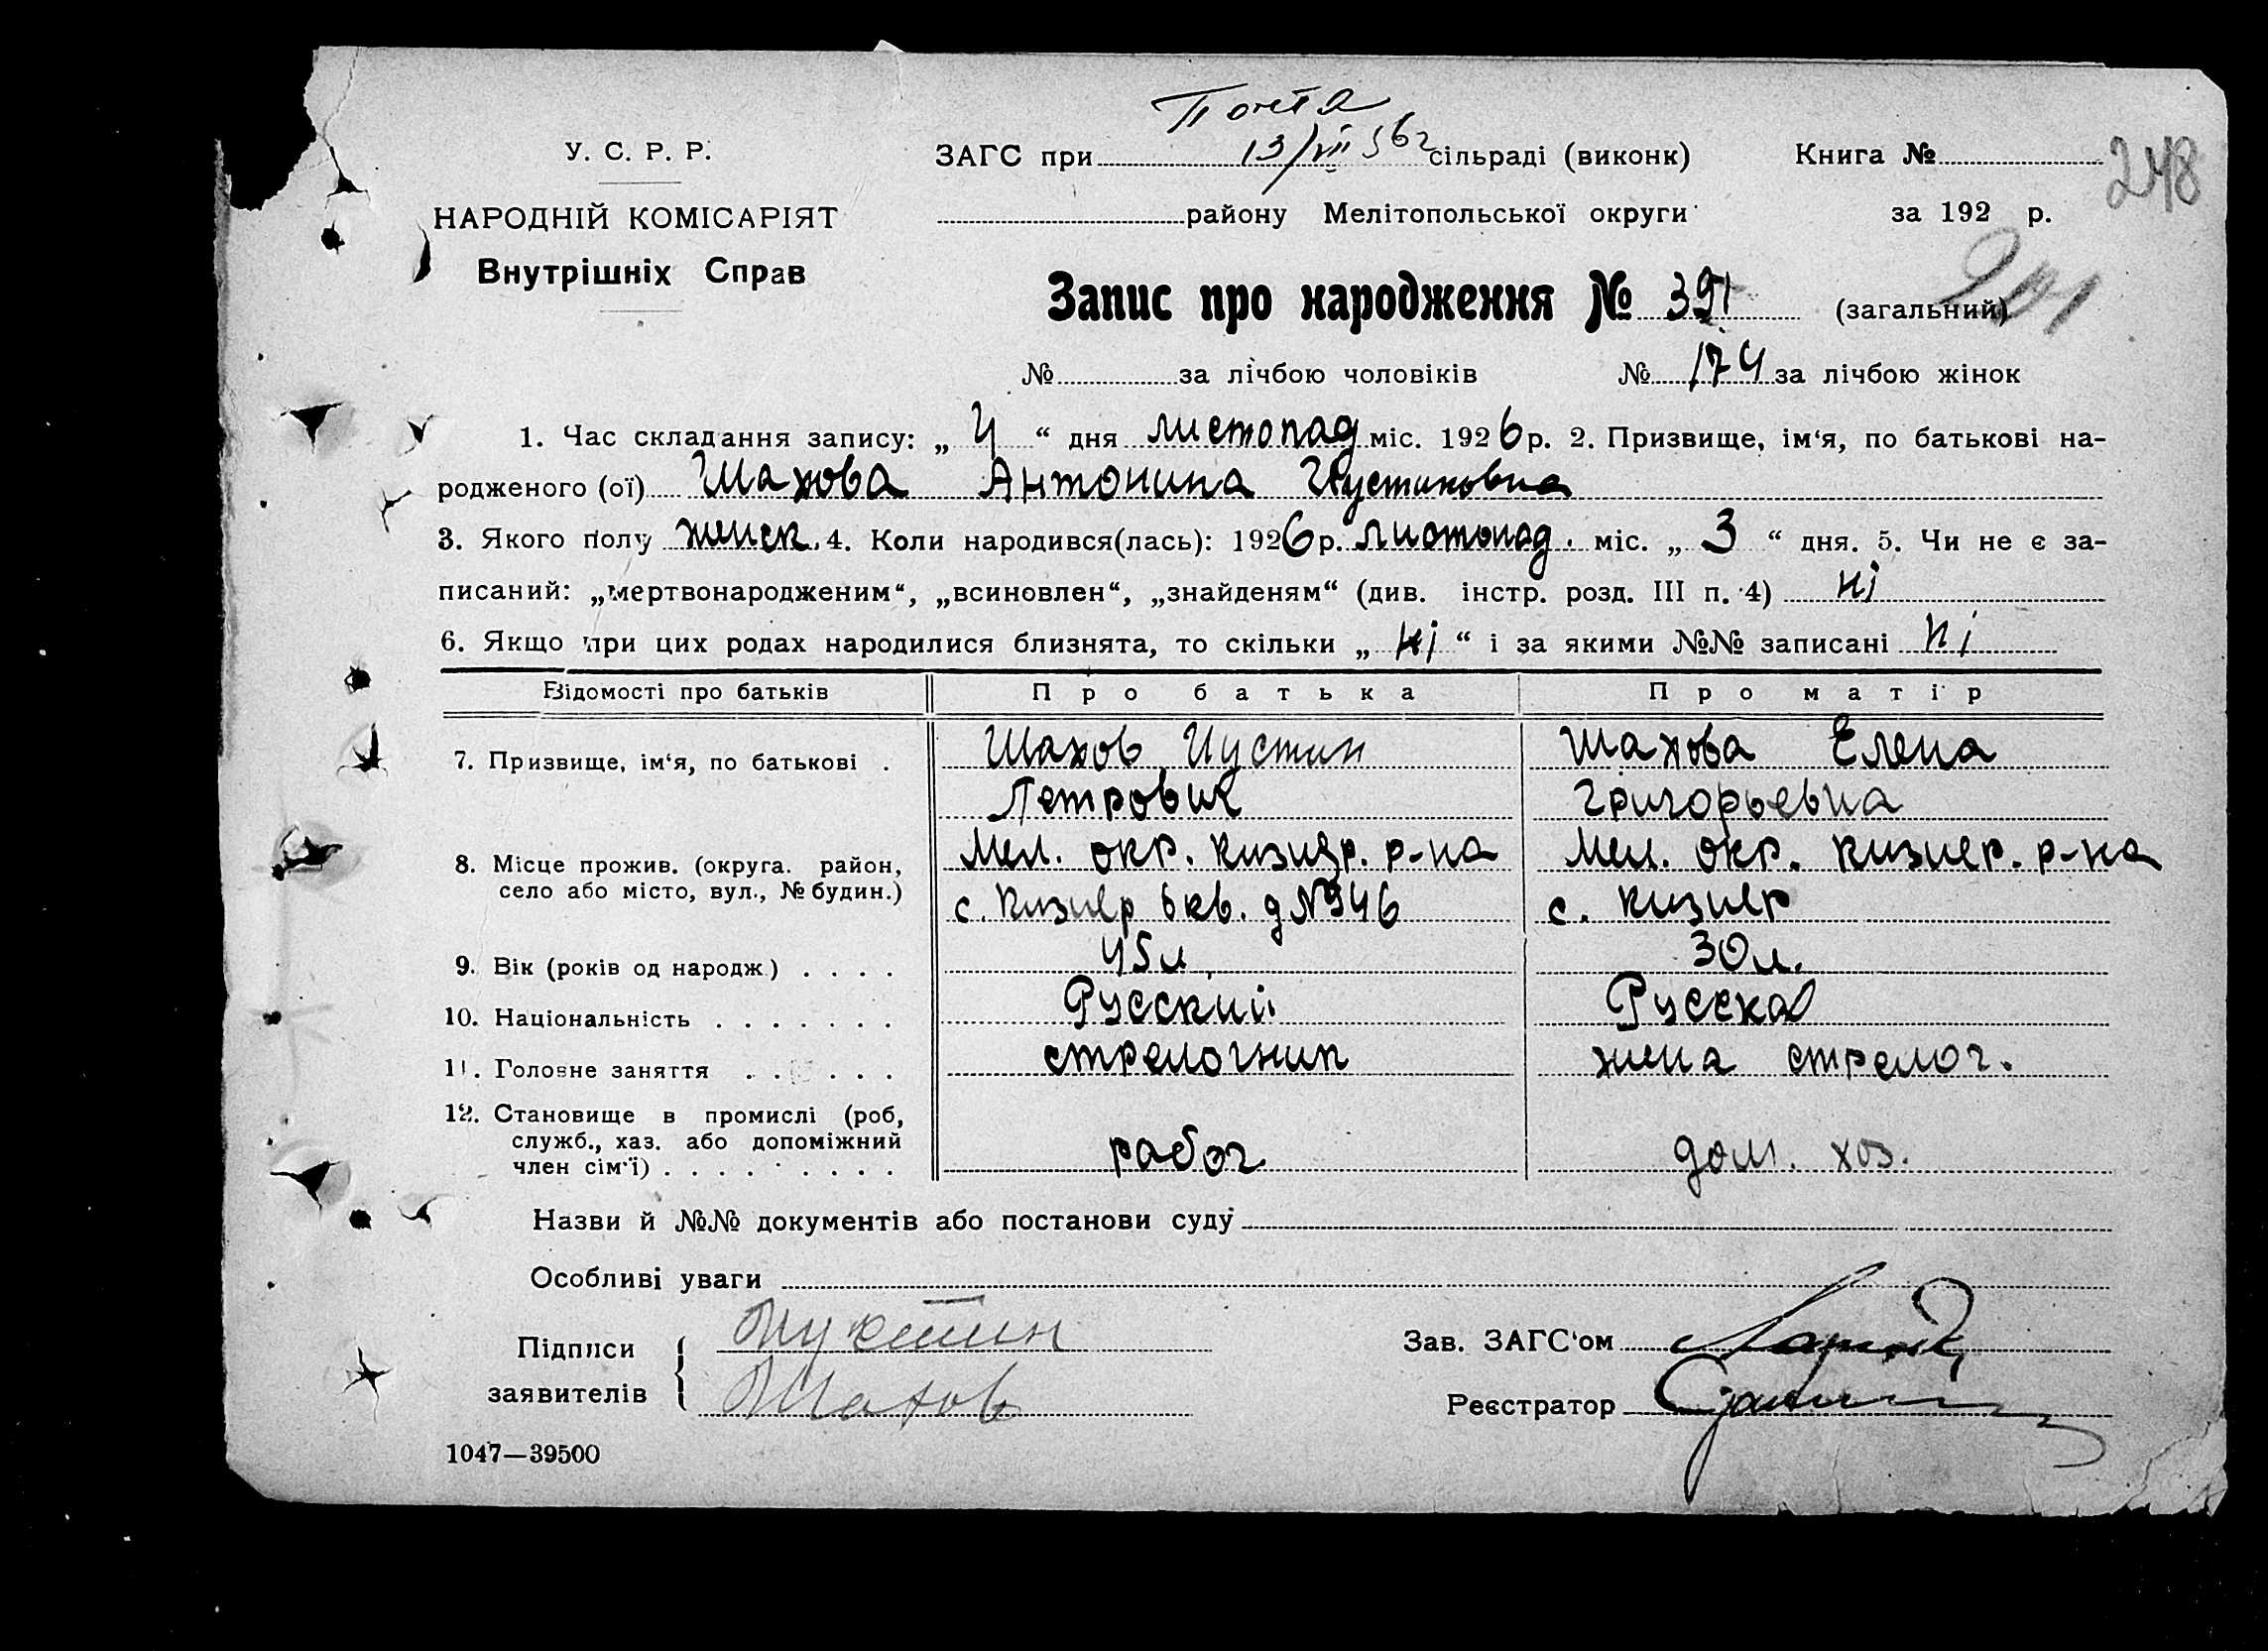 Почта
13/VII 56г
У. С. Р. Р.
ЗАГС при сільраді (виконк)
Книга №
248
НАРОДНІЙ КОМІСАРІЯТ
району Мелітопольської округи
за 192 р.
Внутрішніх Справ
Запис про народження № 391 (загальний)
№ за лічбою чоловіків № 174 за лічбою жінок
1. Час складання запису: „ 4 “ дня листопад міс. 1926 р. 2. Призвище, ім‘я, по батькові на-
родженого (ої) Шахова Антонина Иустиновна
3. Якого полу женск. 4. Коли народився(лась): 1926 р. листопад. міс. „ 3 “ дня. 5. Чи не є за-
писаний: „мертвонародженим“, „всиновлен“, „знайденям“ (див. інстр. розд. III п. 4) ні
6. Якщо при цих родах народилися близнята, то скільки „ ні “ і за якими №№ записані ні
Відомості про батьків Про батька Про матір
7. Призвище, ім‘я, по батькові . Шахов Иустин Шахова Елена
Петрович Григорьевна
8. Місце прожив. (округа. район, Мел. окр. Кизиер. р-на Мел. окр. Кизиер. р-на
село або місто, вул., № будин.) с. Кизиер 6 кв. д № 946 с. Кизиер
9. Вік (років од народж.) . . . . 45 л 30 л.
10. Національність . . . . . . . Русский Русская
11. Головне заняття . . . . . . стрелочник жена стрелоч.
12. Становище в промислі (роб,
служб., хаз. або допоміжний
член сім‘ї) . . . . . . . . . рабоч дом. хоз.
Назви й №№ документів або постанови суду
Особливі уваги
Підписи Иустин
заявителів Шахов
Зав. ЗАГС‘ом
Реєстратор
1047—39500